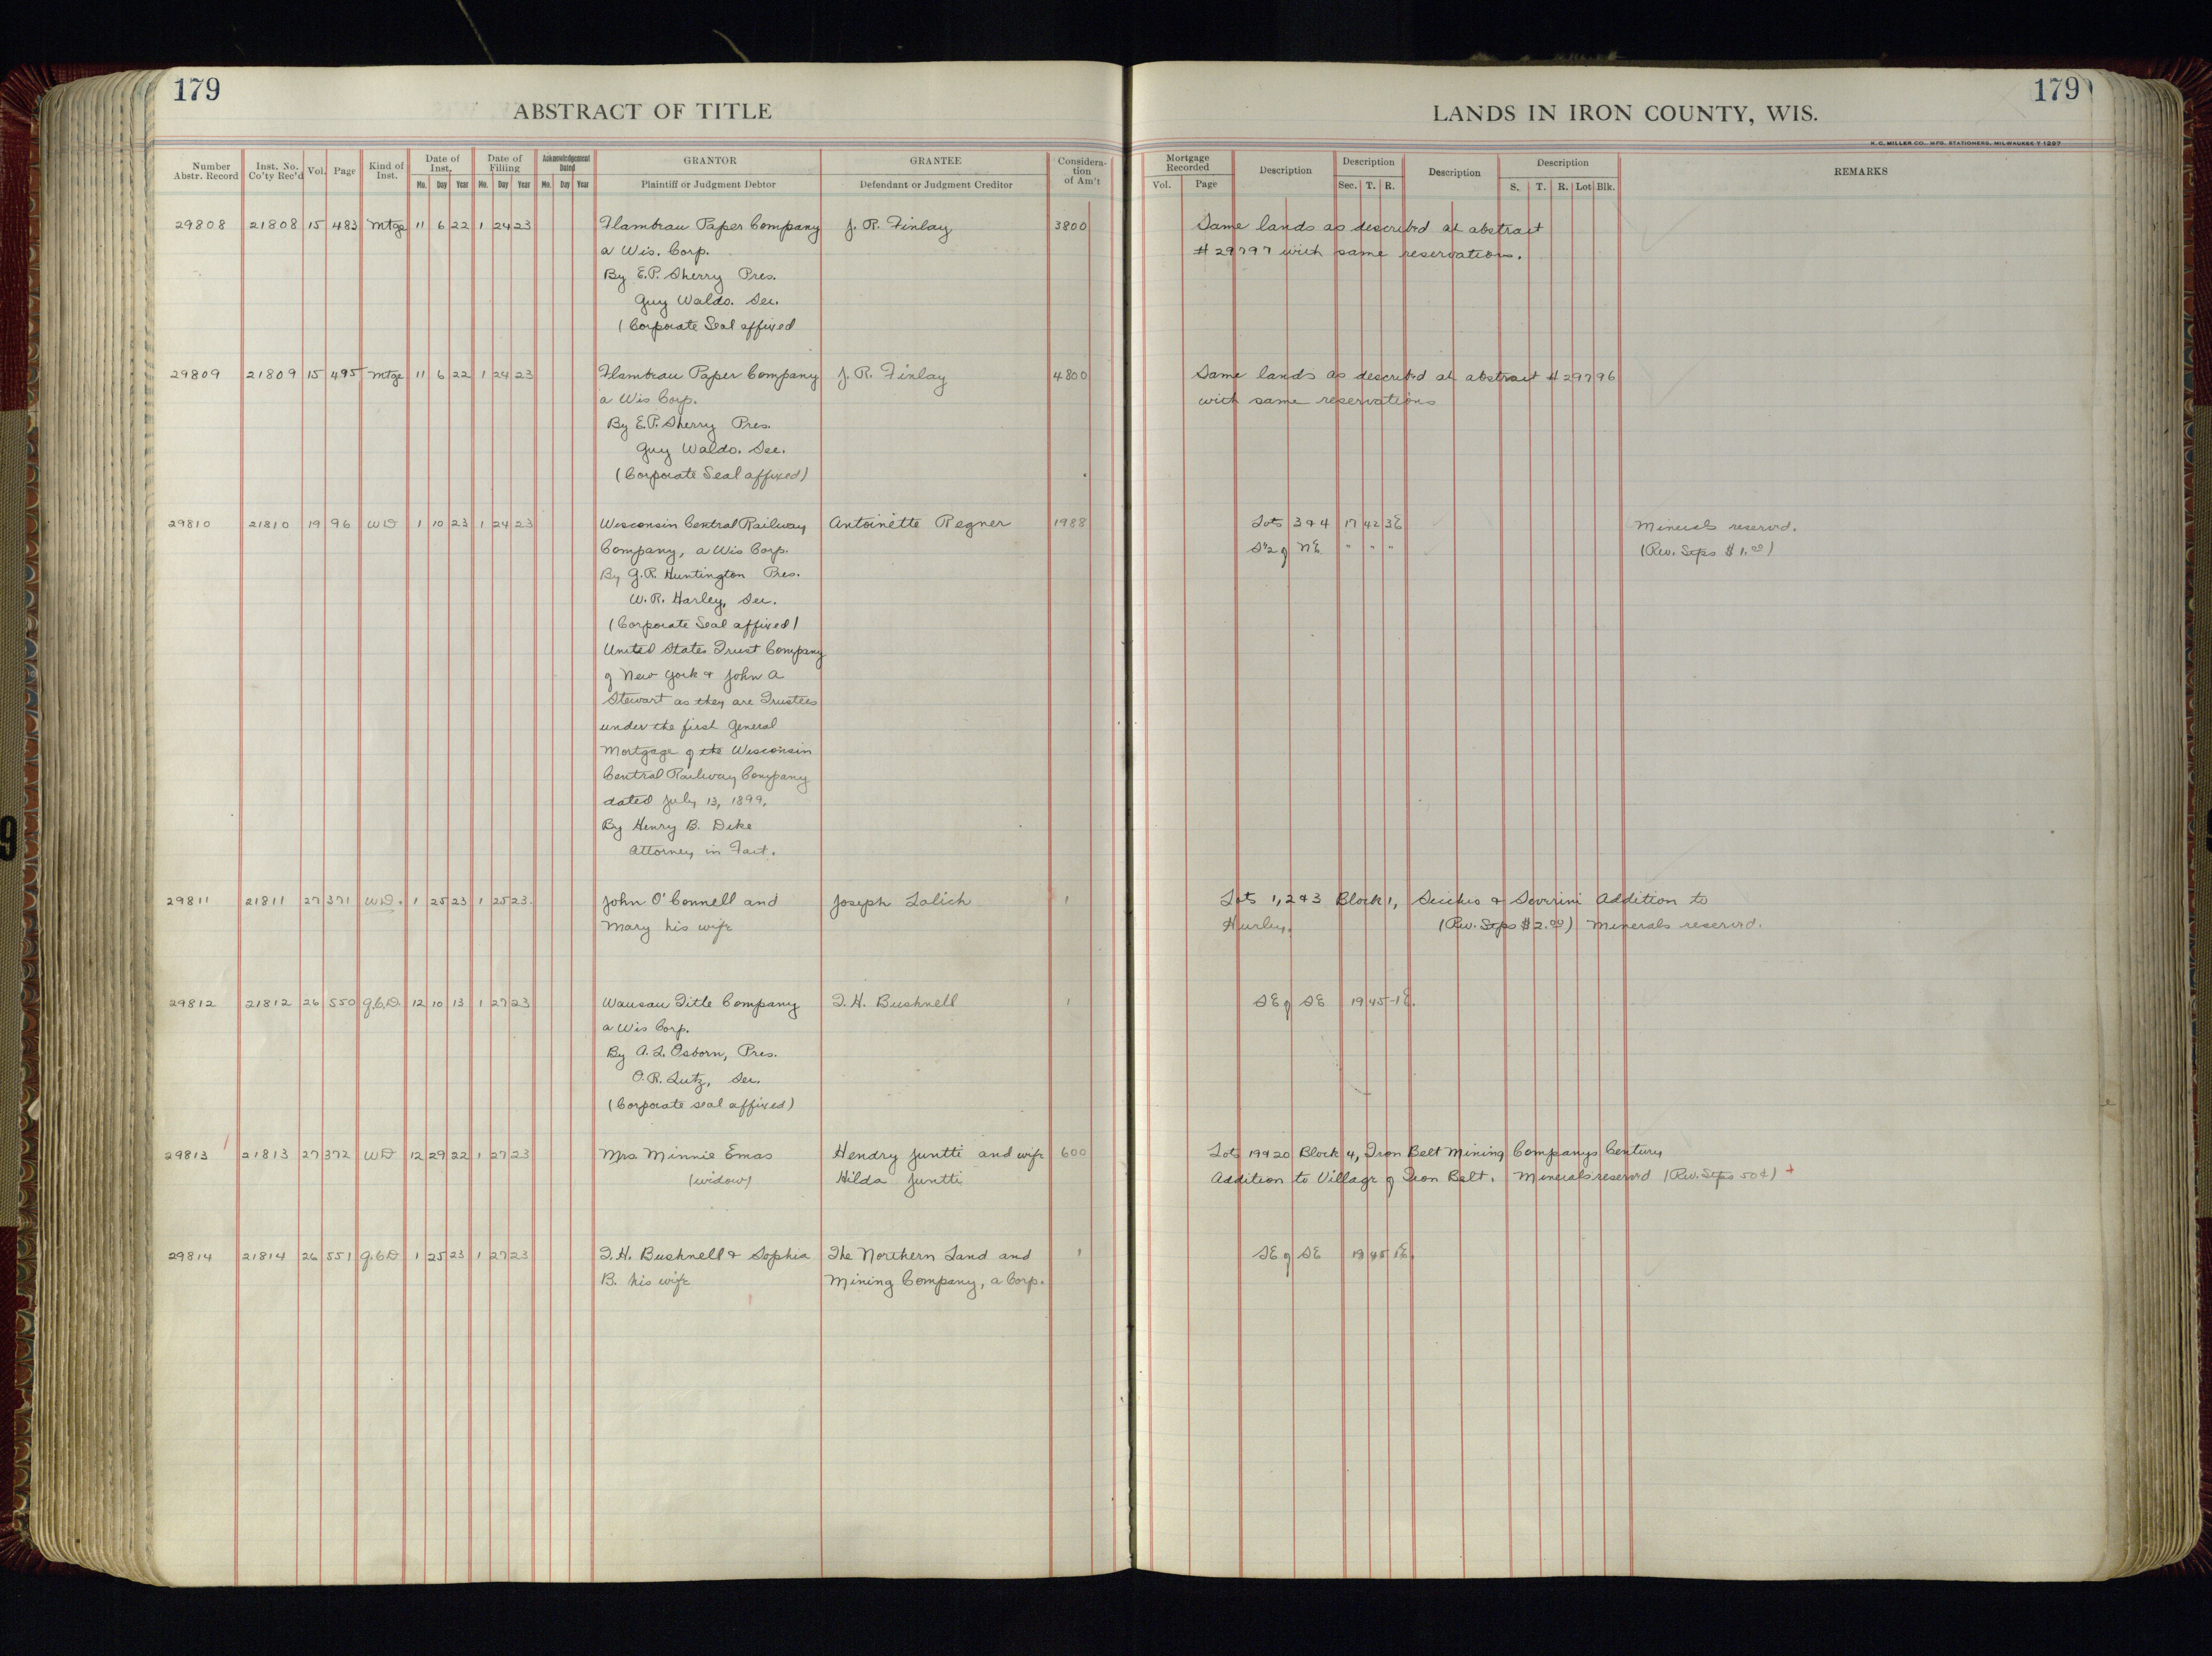 179
ABSTRACT OF TITLE
LANDS IN IRON COUNTY, WIS.
179
H. C. MILLER CO., MFG. STATIONERS, MILWAUKEE
Number Abstr. Record
Inst. No. Co'ty Rec'd
Vol.
Page
Kind of Inst.
Date of Inst.
Mo. Day Year
Date of Filing
Mo. Day Year
Acknowledgement Dated
Mo. Day Year
GRANTOR
Plaintiff or Judgment Debtor
GRANTEE
Defendant or Judgment Creditor
Considera-tion of Am't
Mortgage Recorded
Vol. Page
Description
Description
Sec. T. R.
Description
Description
S. T. R. Lot Blk.
REMARKS
29808 21808 15 483 Mtge 11 6 22 1 24 23 Flambeau Paper Company J. R. Finlay 3800 Same lands as described at abstract
a Wis. Corp. # 29797 with same reservations.
By E.P. Sherry Pres.
Guy Waldo. Sec.
(Corporate Seal affixed
29809 21809 15 495 Mtge 11 6 22 1 24 23 Flambeau Paper Company J. R. Finlay 4800 Same lands as described at abstract # 29796
a Wis Corp. with same reservations
By E.P. Sherry Pres.
Guy Waldo. Sec.
(Corporate Seal affixed)
29810 21810 19 96 WD 1 10 23 1 24 23 Wisconsin Central Railway Antoinette Regner 1988 Lots 3 & 4 17 42 3E Minerals reserved.
Company, a Wis Corp. S½ of NE " " " (Rev. Stps $1.00)
By G.R. Huntington Pres.
W. R. Harley, Sec.
(Corporate Seal affixed)
United States Trust Company
of New York & John A
Stewart as they are Trustees
under the first General
Mortgage of the Wisconsin
Central Railway Company
dated July 13, 1899.
By Henry B. Dike
Attorney in Fact.
29811 21811 27 371 W.D. 1 25 23 1 25 23. John O'Connell and Joseph Lalich 1 Lots 1, 2 & 3 Block 1, & Severini Addition to
Mary his wife Hurley. (Rev. Stps $2.00) Minerals reserved.
29812 21812 26 550 Q.C.D. 12 10 13 1 27 23 Wausau Title Company T. H. Bushnell 1 SE of SE 19 45-1E.
a Wis Corp.
By A. L. Osborn, Pres.
O. R. Lutz, Sec.
(Corporate seal affixed)
29813 21813 27 372 WD 12 29 22 1 27 23 Mrs. Minnie Emas Hendry Juntti and wife 600 Lots 19 & 20 Block 4, Iron Belt Mining Companys Century
(widow) Hilda Juntti Addition to Village of Iron Belt. Minerals reserved (Rev. Stps 50¢) +
29814 21814 26 551 Q.C.D 1 25 23 1 27 23 T. H. Bushnell & Sophia The Northern Land and 1 SE of SE 19 45 1E.
B. his wife Mining Company, a Corp.